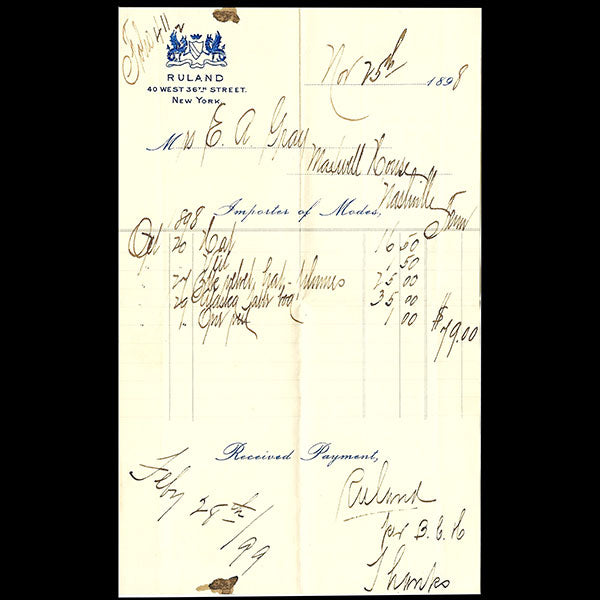 RULAND
40 WEST 36TH STREET.
NEW YORK.
Nov 25th 1898
Mrs E. A Gray
Maxwell House
Nashville
Tenn
Importer of Modes,
1898
Oct 20 Hat 16 50
" 1 50
" 24 Blue velvet hat - plumes 25 00
" 29 Alaska sable 35 00
" " 1 00
$79.00
Received Payment,
Feby 28th/99
Ruland
per B. E. C
Thanks